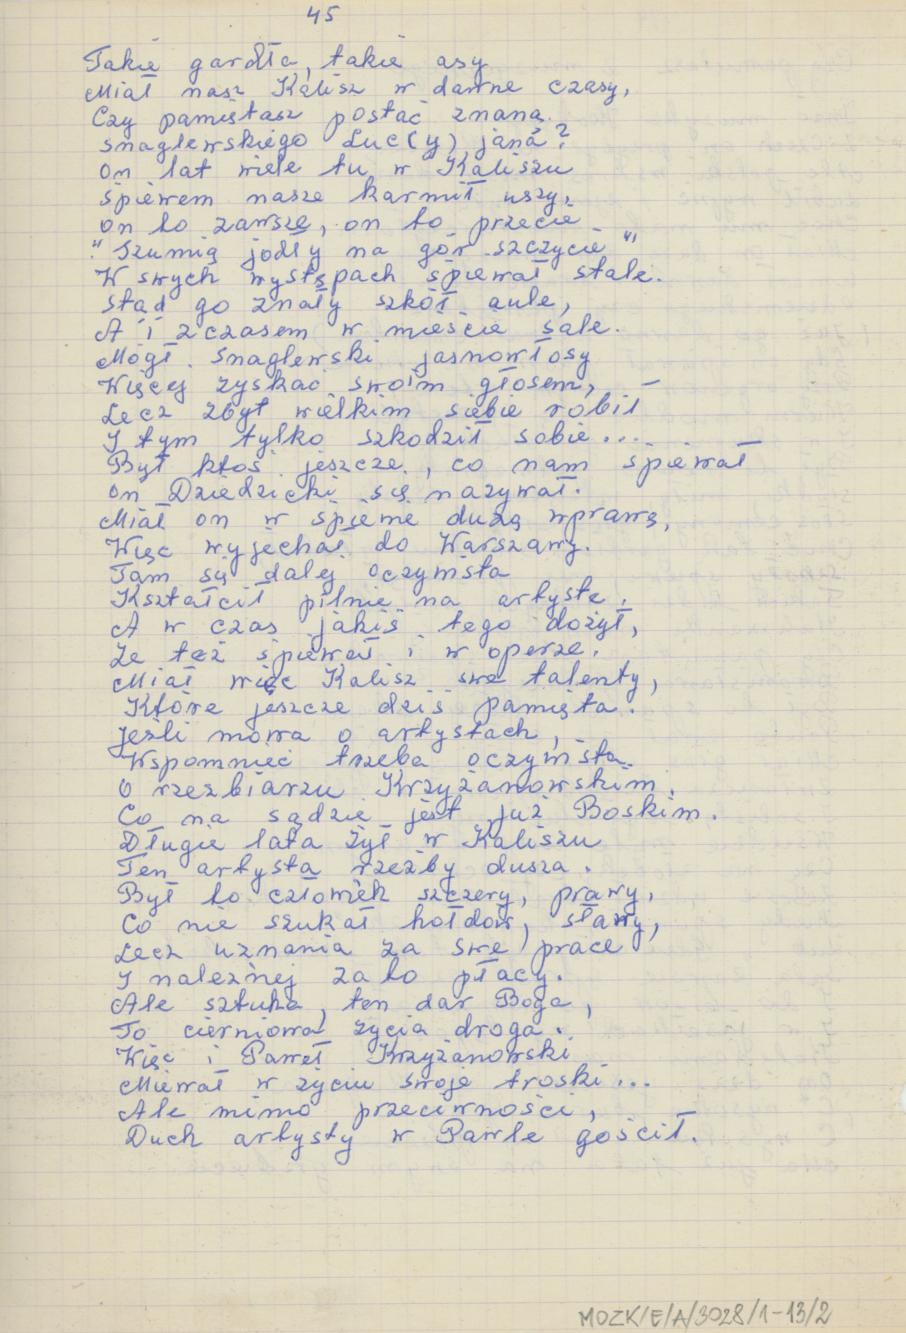 45
Takie gardła, takie asy
Miał nasz Kalisz w dawne czasy,
Czy pamiętasz postać znaną
Snaglewskiego Luc(y)jana?
On lat wiele tu w Kaliszu
Śpiewem nasze karmił uszy,
On to zawsze, on to przecie
"Szumią jodły na gór szczycie"
W swych występach śpiewał stale.
Stąd go znały szkół aule,
A i z czasem w mieście sale.
Mógł Snaglewski jasnowłosy
Więcej zyskać swoim głosem, –
Lecz zbyt wielkim siebie robił
I tym tylko szkodził sobie...
Był ktoś jeszcze, co nam śpiewał
On Dziedzicki się nazywał.
Miał on w śpiewie dużą wprawę,
Więc wyjechał do Warszawy.
Tam się dalej oczywista
Kształcił pilnie na artystę,
A w czas jakiś tego dożył,
Że też śpiewał i w operze.
Miał więc Kalisz swe talenty,
Które jeszcze dziś pamięta.
Jeśli mowa o artystach,
Wspomnieć trzeba oczywista
O rzeźbiarzu Krzyżanowskim,
Co na sądzie jest już Boskim.
Długie lata żył w Kaliszu
Ten artysta rzeźby dusza.
Był to człowiek szczery, prawy,
Co nie szukał hołdów, sławy,
Lecz uznania za swe prace
I należnej za to płacy.
Ale sztuka, ten dar Boga,
To cierniowa życia droga.
Więc i Paweł Krzyżanowski
Miewał w życiu swoje troski...
Ale mimo przeciwności,
Duch artysty w Pawle gościł.
MOZK/E/A/3028/1-13/2